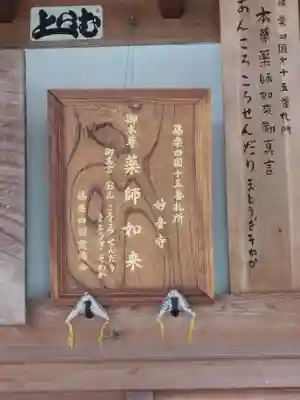 篠栗四国十五番札所
本尊薬師如来御真言
おんころころせんだりまとうぎそわか
篠栗四国十五番札所
妙音寺
御本尊
薬師如来
御真言 おん ころころ せんだり
まとうぎ そわか
篠栗四国霊場会